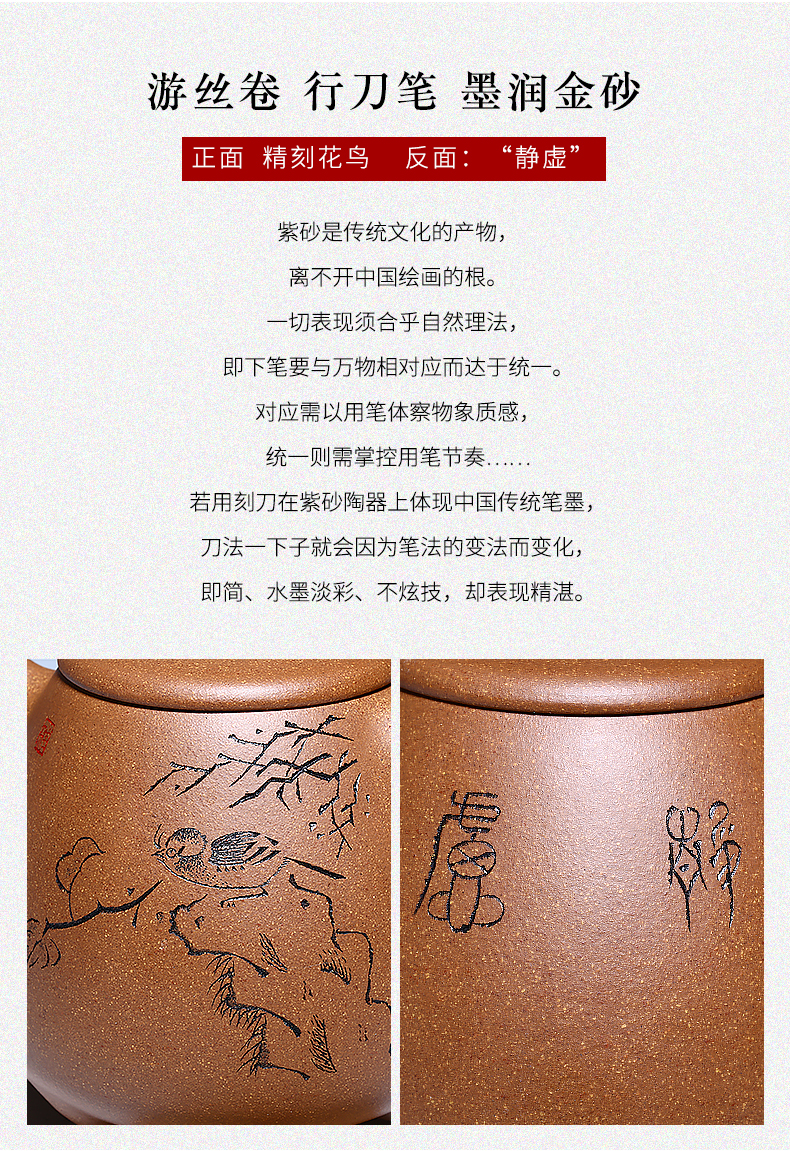 游丝卷 行刀笔 墨润金砂
正面 精刻花鸟 反面：“静虚”
紫砂是传统文化的产物，
离不开中国绘画的根。
一切表现须合乎自然理法，
即下笔要与万物相对应而达于统一。
对应需以用笔体察物象质感，
统一则需掌控用笔节奏……
若用刻刀在紫砂陶器上体现中国传统笔墨，
刀法一下子就会因为笔法的变法而变化，
即简、水墨淡彩、不炫技，却表现精湛。
虚 静